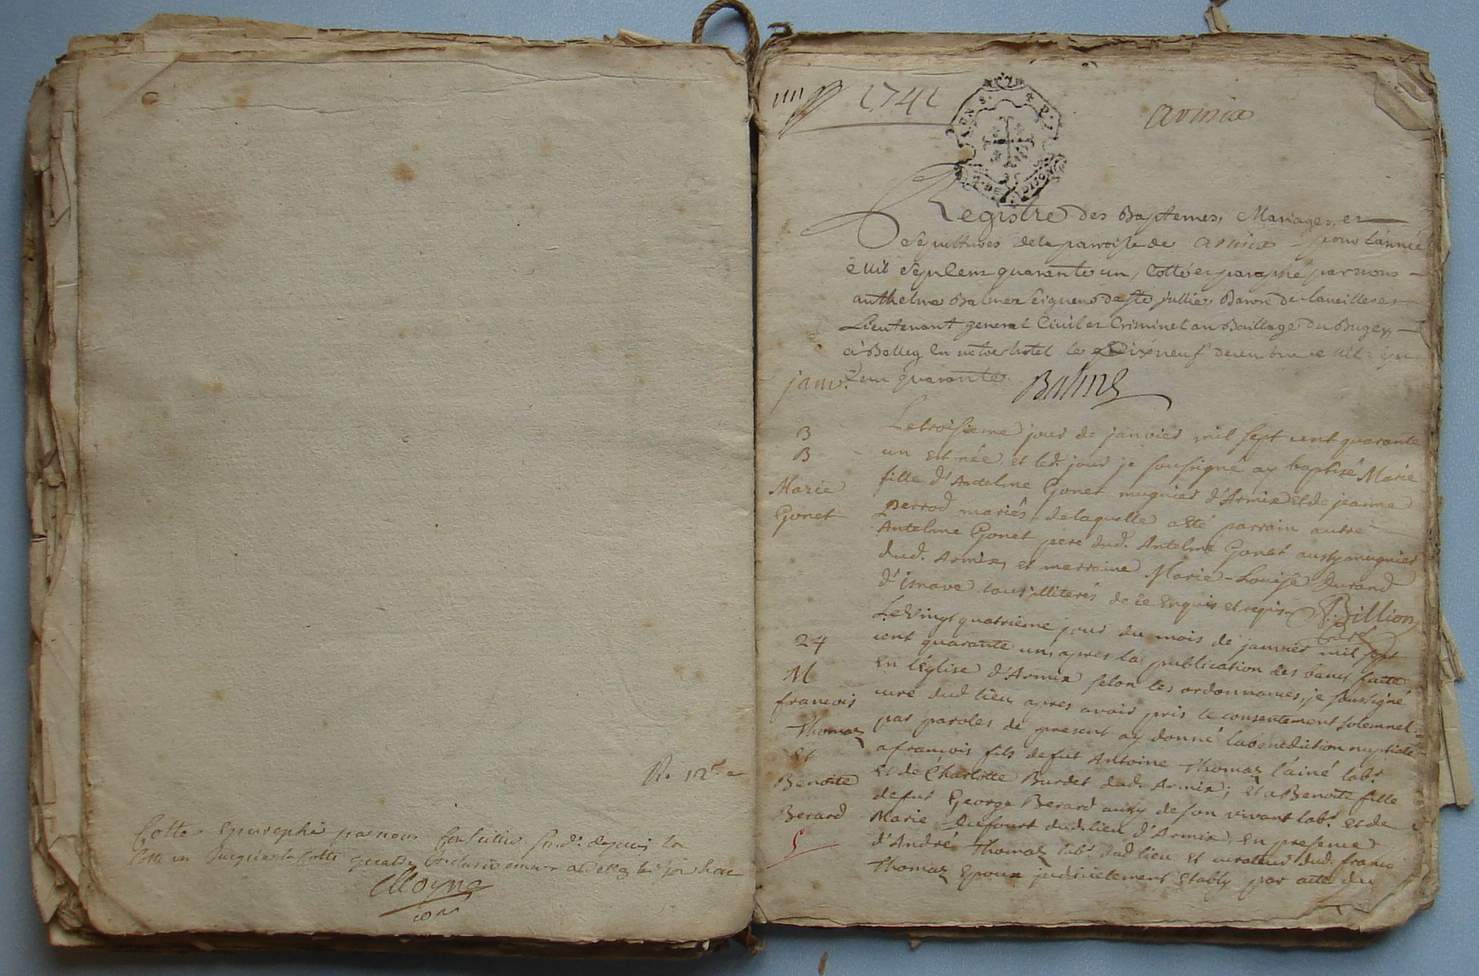 R.
Cottes et paraphé par nous
Moyne
1741
armix
GEN. DE DIJON
Registre des Baptemes, Mariages, et
Sepultures de la paroisse de armix pour l'année
Mil Sept Cens quarante un, Cotté et paraphé par nous
anthelme Balme Seigneur de Ste jullie, Baron de
Lieutenant general Civil et Criminel au Bailliage du Bugey
à Belley En notre hotel le Dixneuf decembre Mil
quarante. Balme
janv.
Le troisieme jour de janvier mil sept cent quarante
un est née et led. jour je soussigné ay baptisé Marie
fille d'Antelme Gonet mugnier d'Armix et de jeanne
Perrod mariés, de laquelle a été parrain autre
Antelme Gonet pere dud. Antelme Gonet aussy mugnier
dud. Armix, et marraine Marie-Louise Durand
d'isnave tous illiterés de ce Enquis et requis Billion
curé
B
B
Marie
Gonet
Le vingt quatrieme jour du mois de janvier mil sept
cent quarante un, apres la publication des bans faitte
en l'église d'Armix selon les ordonnances, je soussigné
curé dud. lieu apres avoir pris le consentement solemnel
par paroles de present ay donné la benediction nuptiale
a françois fils de fut Antoine Thomaz l'ainé lab.r
et de Charlotte Burdet dud. Armix; et a Benoite fille
de fut George Berard aussy de son vivant lab.r et de
Marie Dufourt dud. lieu d'Armix, en presence
d'André Thomaz lab.r dud. lieu et curateur dud. françois
Thomaz Epoux judicielement etably par acte du
24
M
françois
Thomaz
et
Benoite
Berard